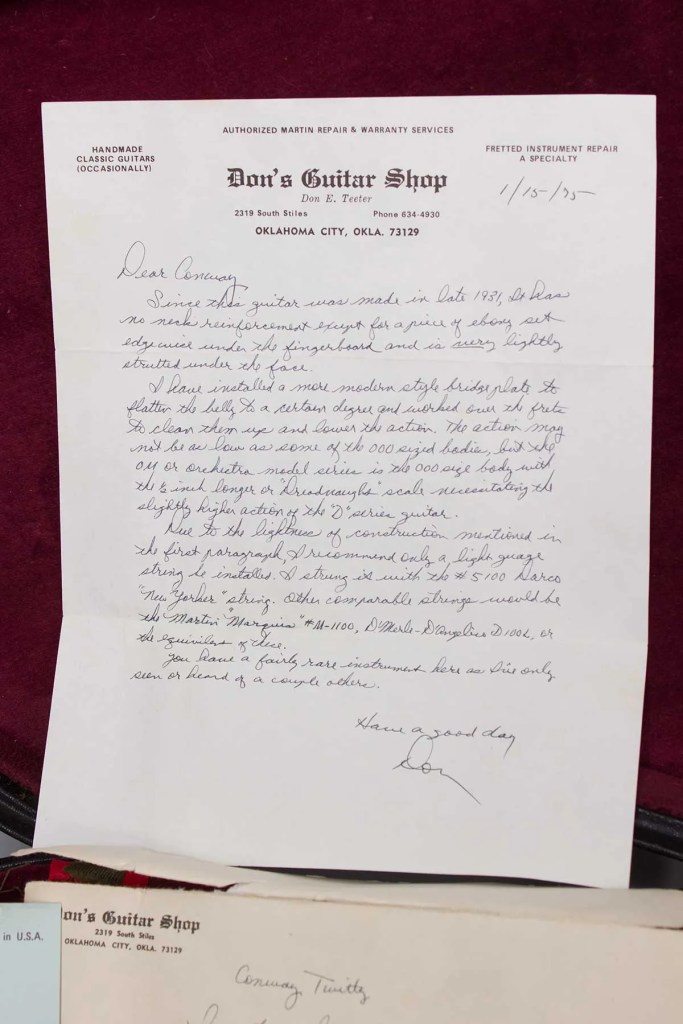 AUTHORIZED MARTIN REPAIR & WARRANTY SERVICES
HANDMADE
CLASSIC GUITARS
(OCCASIONALLY)
FRETTED INSTRUMENT REPAIR
A SPECIALTY
Don's Guitar Shop
Don E. Teeter
1/15/75
2319 South Stiles Phone 634-4930
OKLAHOMA CITY, OKLA. 73129
Dear Conway
Since this guitar was made in late 1931, It has
no neck reinforcement except for a piece of ebony set
edgewise under the fingerboard and is very lightly
strutted under the face.
I have installed a more modern style bridge plate to
flatten the belly to a certain degree and worked over the frets
to clean them up and lower the action. The action may
not be as low as some of the 000 sized bodies, but the
OM or orchestra model series is the 000 size body with
the ½ inch longer or "Dreadnaught" scale necessitating the
slightly higher action of the "D" series guitar.
Due to the lightness of construction mentioned in
the first paragraph, I recommend only a light guage
string be installed. I strung it with the #5100 Darco
"New Yorker" string. Other comparable strings would be
the Martin "Marquis" #M-1100, D'Merle-D'Angelico D100L, or
the equivilent of these.
You have a fairly rare instrument here as I've only
seen or heard of a couple others.
Have a good day
Don
Don's Guitar Shop
2319 South Stiles
OKLAHOMA CITY, OKLA. 73129
in U.S.A.
Conway Twitty